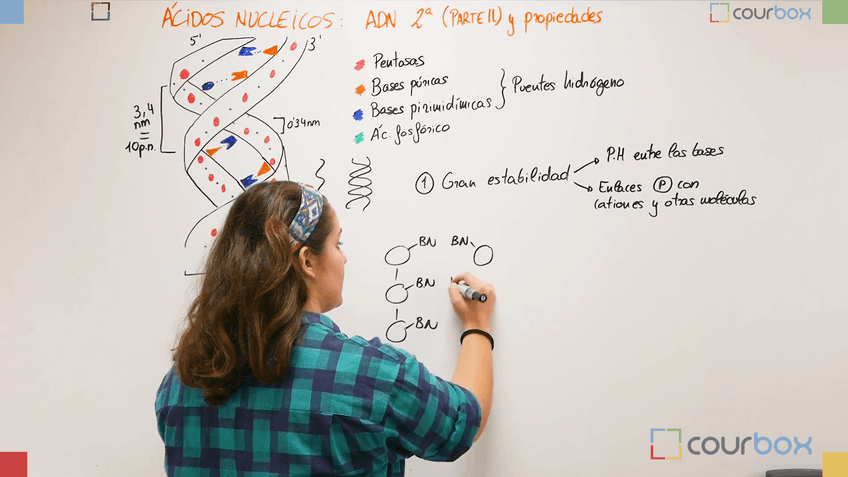 ÁCIDOS NUCLEICOS: ADN 2ª (PARTE II) y propiedades
courbox
5'
3'
3,4
nm
=
10 p.n.
0'34nm
Pentosas
Bases púricas
Bases pirimidímicas
Ác. fosfórico
Puentes hidrógeno
1 Gran estabilidad
P.H entre las bases
Enlaces P con
cationes y otras moléculas
BN BN
BN
BN
courbox